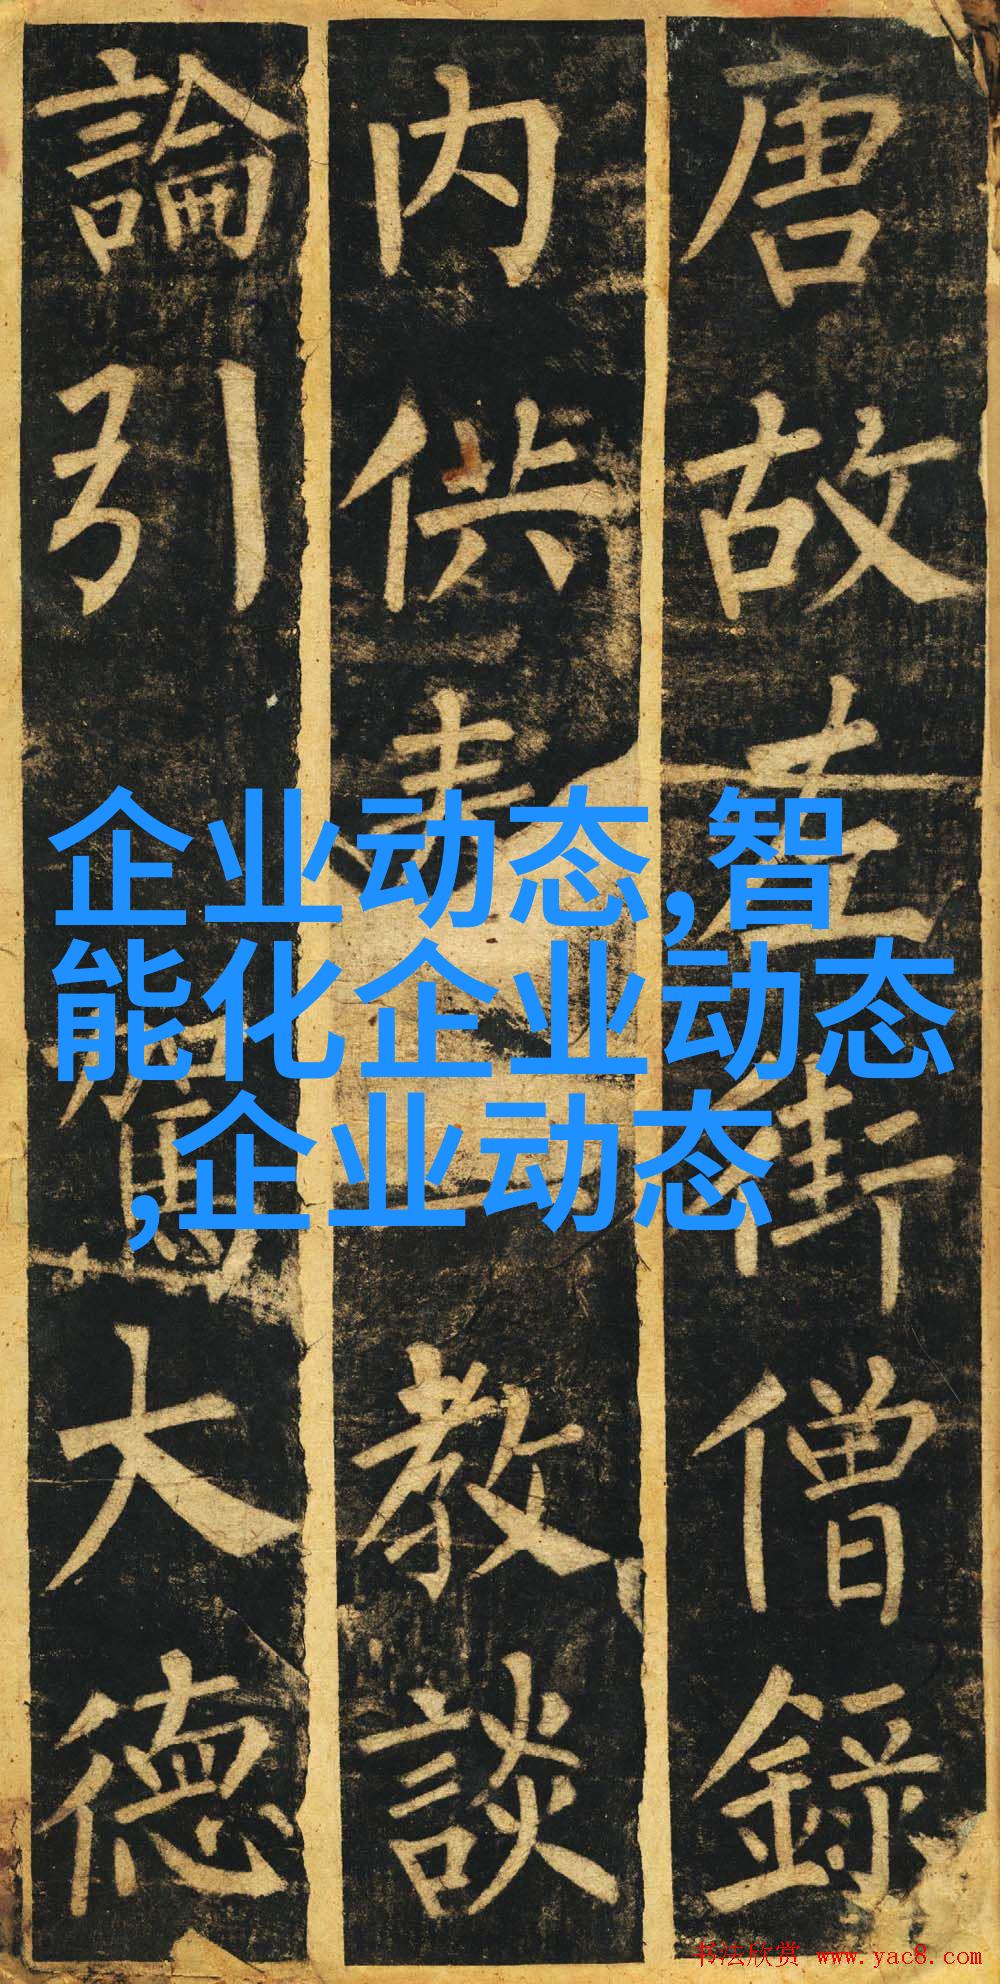 唐故左街僧録
内供奉三教談
論引駕大德
企业动态,智
能化企业动态
,企业动态
书法欣赏 www.yac8.com